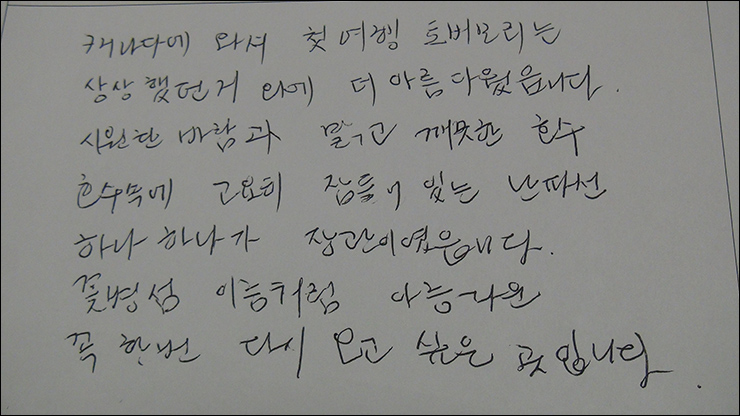 캐나다에 와서 첫 여행 토버모리는
상상했던거 외에 더 아름다웠읍니다.
시원한 바람과 맑고 깨끗한 호수
호수속에 고요히 잠들어 있는 난파선
하나 하나가 장관이였읍니다.
꽃병섬 이름처럼 아름다운
꼭 한번 다시 오고 싶은 곳입니다.